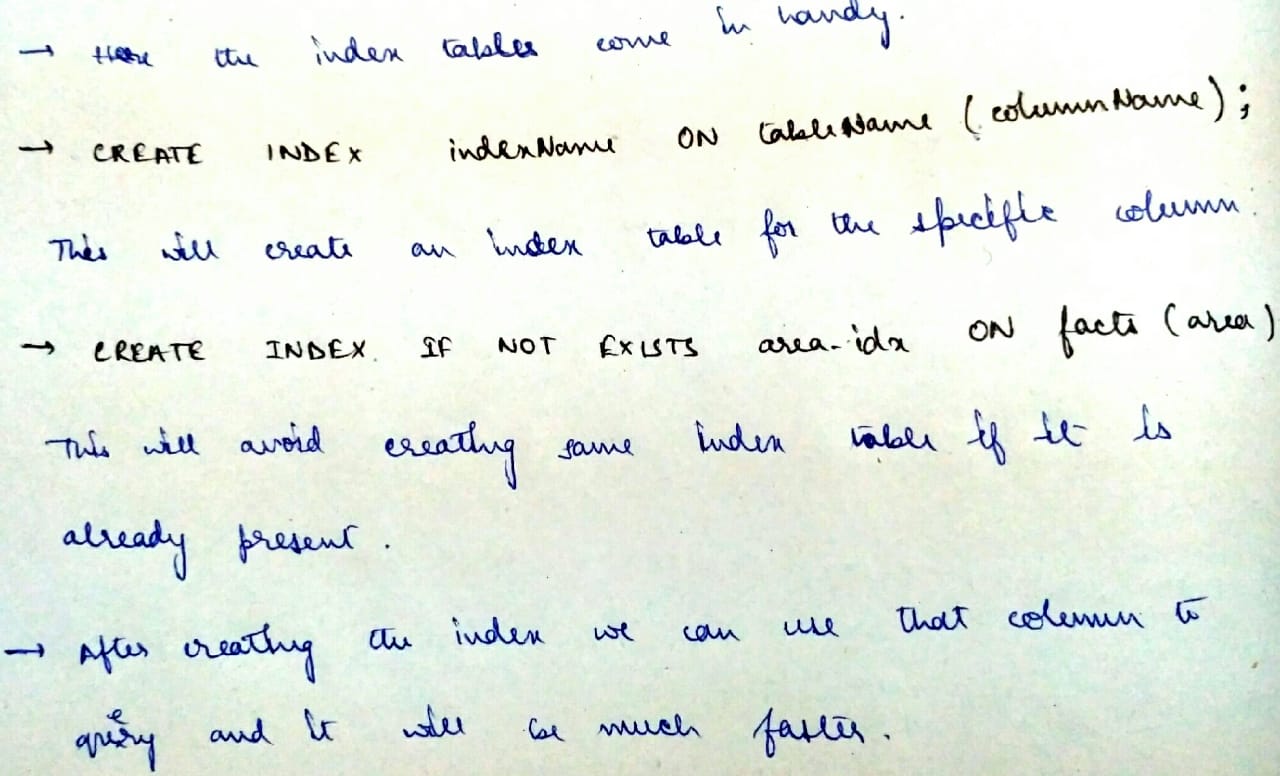 → Here the index tables come in handy.
→ CREATE INDEX indexName ON tableName (columnName);
This will create an index table for the specific column.
→ CREATE INDEX IF NOT EXISTS area-idx ON facts (area)
This will avoid creating same index table if it is
already present.
→ After creating the index we can use that column to
query and it will be much faster.